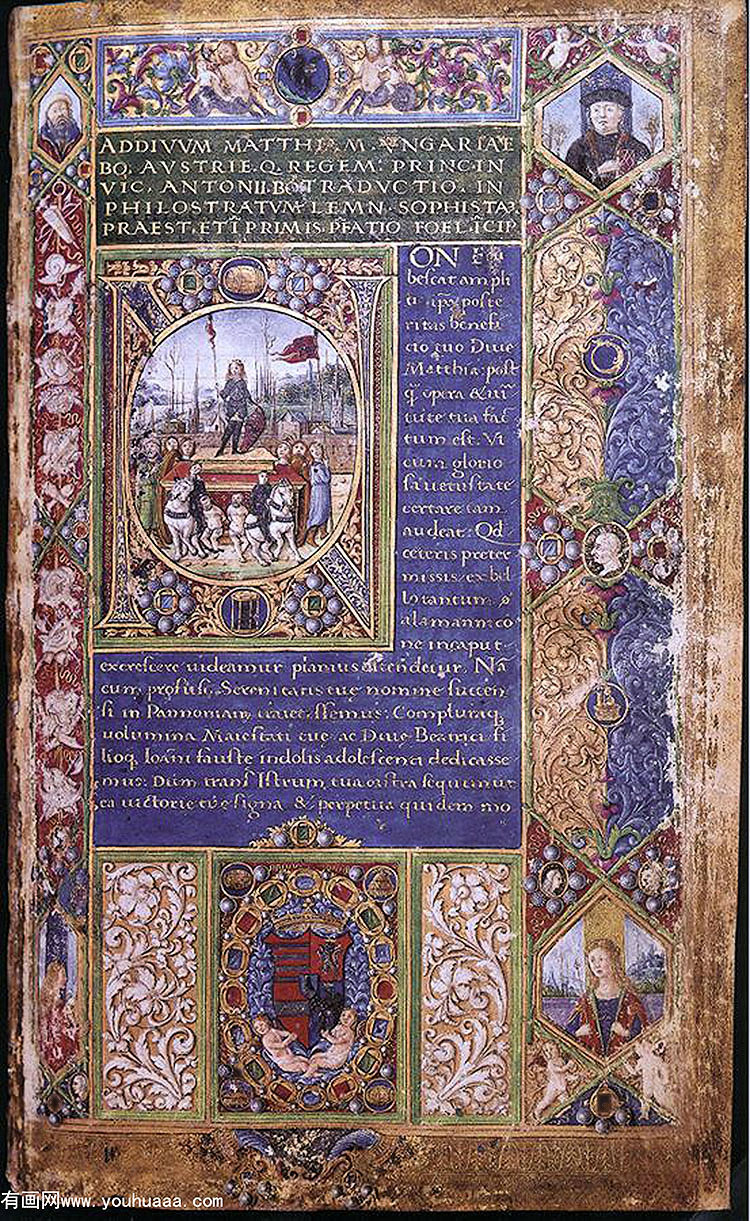 AD DIVVM MATTHIAM. VNGARIAE
BO. AVSTRIE. Q. REGEM: PRINC. IN
VIC. ANTONII. BO. TRADVCTIO. IN
PHILOSTRATVM LEMN. SOPHISTA
PRAEST. ET I PRIMIS PFATIO FOELICIP
ON
bescat ampli
poste
ritas benefi
cio tuo Diue
Matthia: post
opera & uir
tute tua fac
tum est. Vt
cum glorio
sa uetustate
certare iam
audeat: Qd
ceteris preter
missis/ ex bel
lo tantum
alamannico
ne in caput
excrescere uideamur planius ostendetur. Nã
cum profusi. Serenitatis tuę nomine succen
si in Pannoniam traiecissemus: Complura
uolumina Maiestati tuę ac Diuę Beatrici fi
lioq. Ioãni fauste indolis adolescenti dedicasse
mus: Dum trans Istrum tua castra sequimur
ea uictorie tuę signa & perpetua quidem mo
有画网www.youhuaaa.com